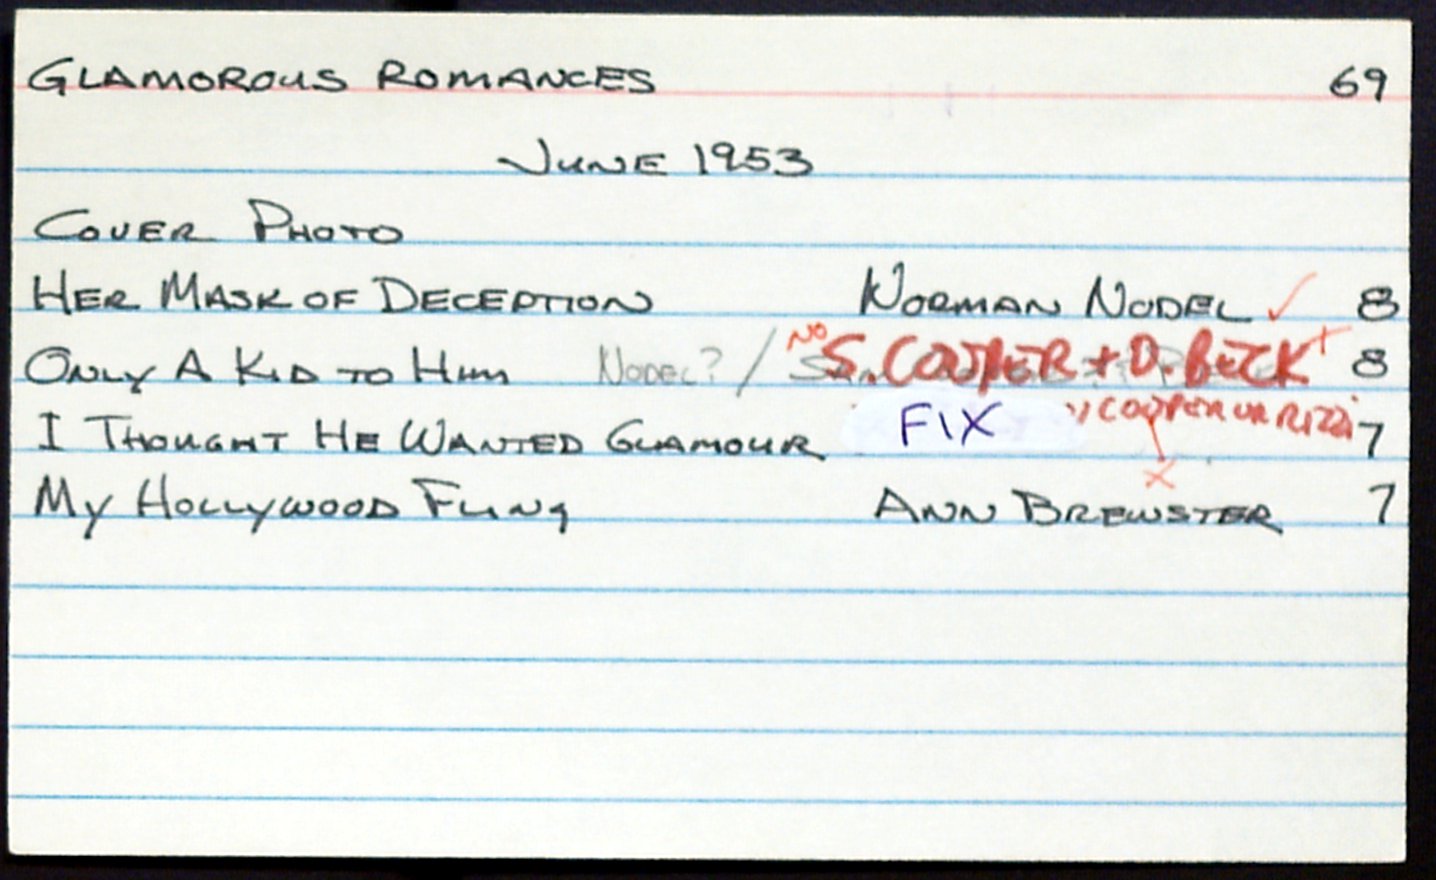 GLAMOROUS ROMANCES 69
JUNE 1953
COVER PHOTO
HER MASK OF DECEPTION NORMAN NODEL ✓ 8
ONLY A KID TO HIM NODEL? / NO S. COOPER + D. BECK 8
I THOUGHT HE WANTED GLAMOUR FIX COOPER OR RIZZI 7
MY HOLLYWOOD FLING ANN BREWSTER 7